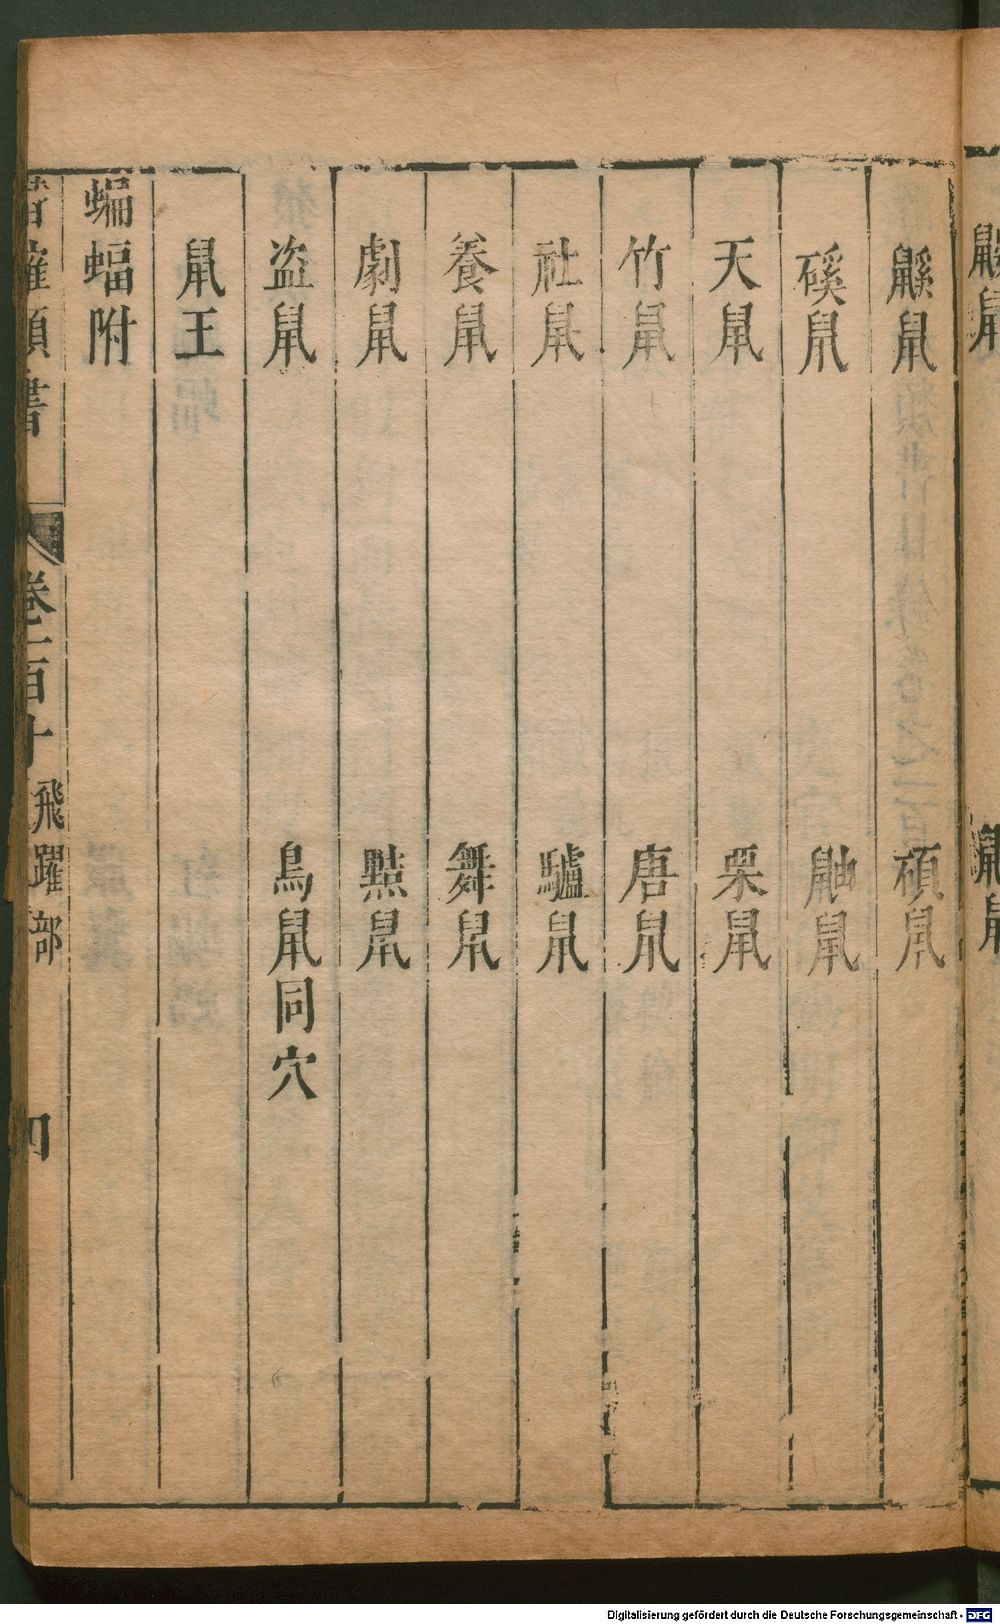 鼷鼠　碩鼠
磎鼠　鼬鼠
天鼠　栗鼠
竹鼠　唐鼠
社鼠　驢鼠
養鼠　舞鼠
劇鼠　㸃鼠
盗鼠　鳥鼠同穴
鼠王
蝙蝠附
潛確類書　卷一百十　飛躍部　四
Digitalisierung gefördert durch die Deutsche Forschungsgemeinschaft - DFG